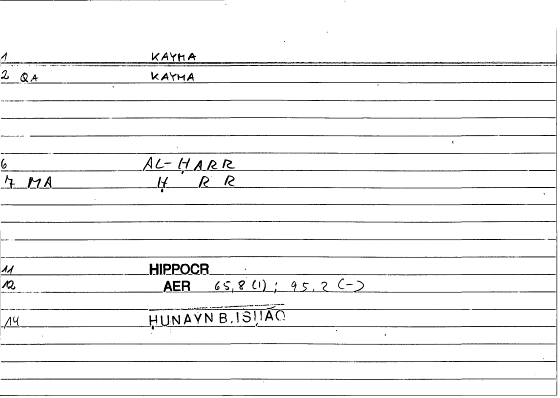 1 KAYMA
2 QA KAYMA
6 AL-ḤARR
7 MA Ḥ R R
11 HIPPOCR
12 AER 65,8 (1) ; 95,2 (-)
14 ḤUNAYN B.ISḤĀQ